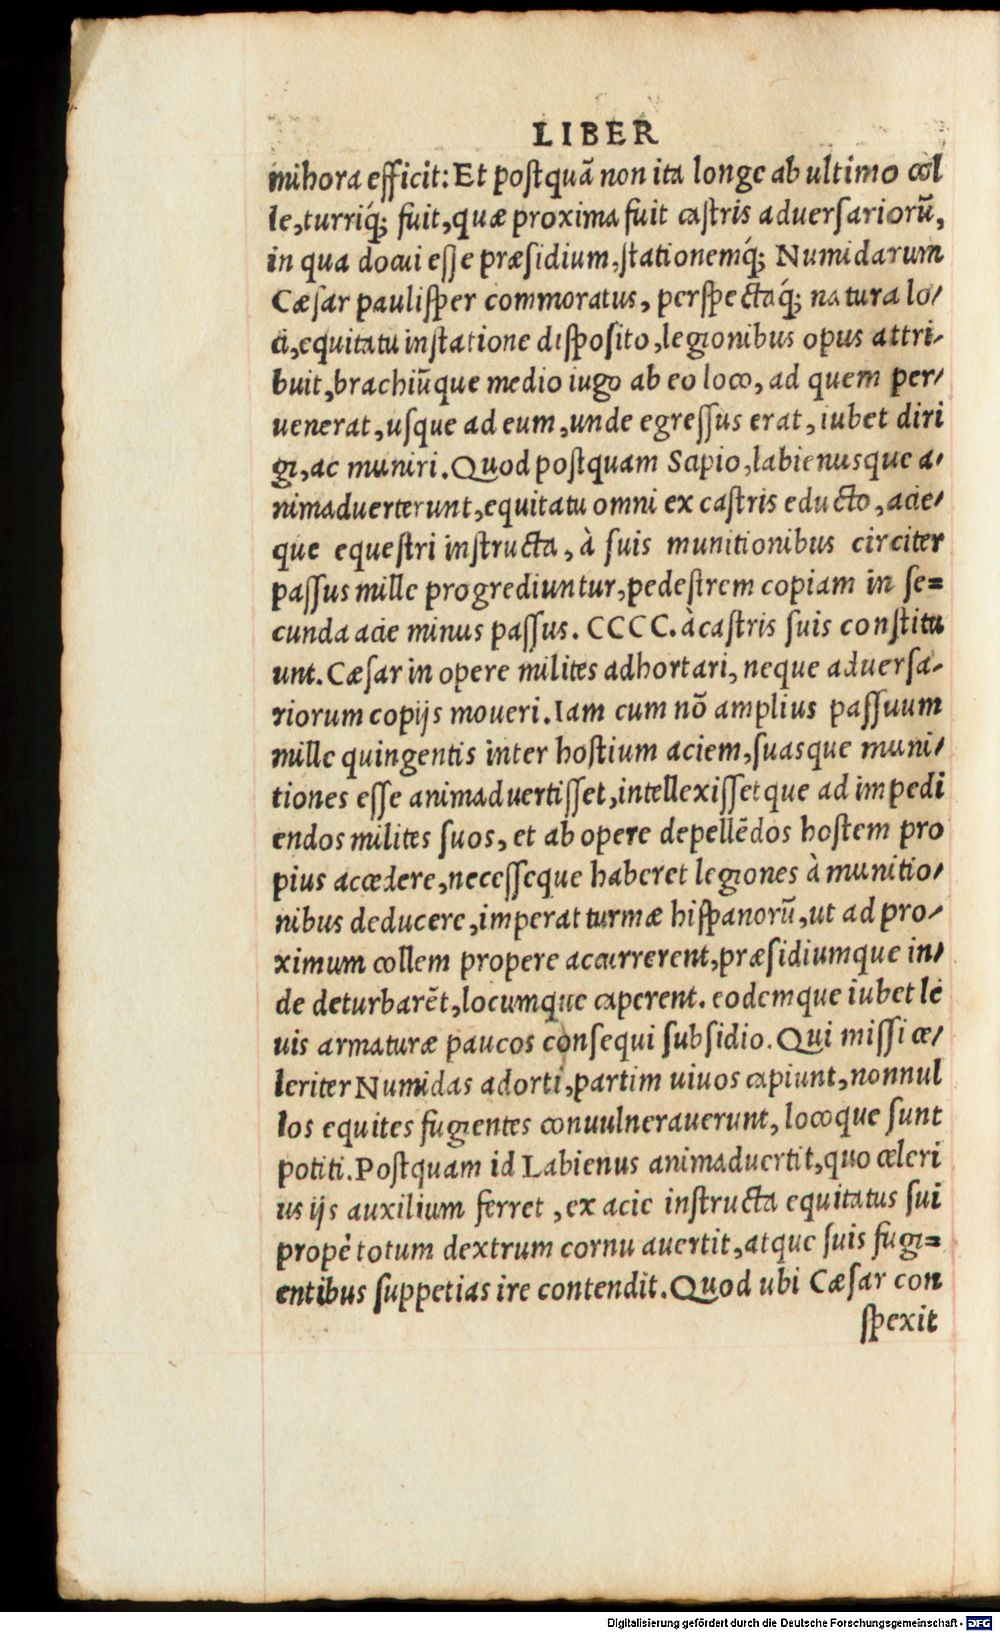 LIBER
mihora efficit: Et postquã non ita longe ab ultimo col
le, turriq́; fuit, quæ proxima fuit castris aduersariorũ,
in qua docui esse præsidium, stationemq́; Numidarum
Cæsar paulisper commoratus, perspectaq́; natura lo/
ci, equitatu in statione disposito, legionibus opus attri/
buit, brachiũque medio iugo ab eo loco, ad quem per/
uenerat, usque ad eum, unde egressus erat, iubet diri
gi, ac muniri. Quod postquam Scipio, labienusque a/
nimaduerterunt, equitatu omni ex castris educto, acie/
que equestri instructa, à suis munitionibus circiter
passus mille progrediuntur, pedestrem copiam in se=
cunda acie minus passus. CCCC. à castris suis constitu
unt. Cæsar in opere milites adhortari, neque aduersa/
riorum copijs moueri. Iam cum nõ amplius passuum
mille quingentis inter hostium aciem, suasque muni/
tiones esse animaduertisset, intellexissetque ad impedi
endos milites suos, et ab opere depellẽdos hostem pro
pius accedere, necesseque haberet legiones à munitio/
nibus deducere, imperat turmæ hispanorũ, ut ad pro/
ximum collem propere accurrerent, præsidiumque in/
de deturbarẽt, locumque caperent. eodemque iubet le
uis armaturæ paucos consequi subsidio. Qui missi ce/
leriter Numidas adorti, partim uiuos capiunt, nonnul
los equites fugientes conuulnerauerunt, locoque sunt
potiti. Postquam id Labienus animaduertit, quo celeri
us ijs auxilium ferret, ex acie instructa equitatus sui
propè totum dextrum cornu auertit, atque suis fugi=
entibus suppetias ire contendit. Quod ubi Cæsar con
spexit
Digitalisierung gefördert durch die Deutsche Forschungsgemeinschaft - DFG